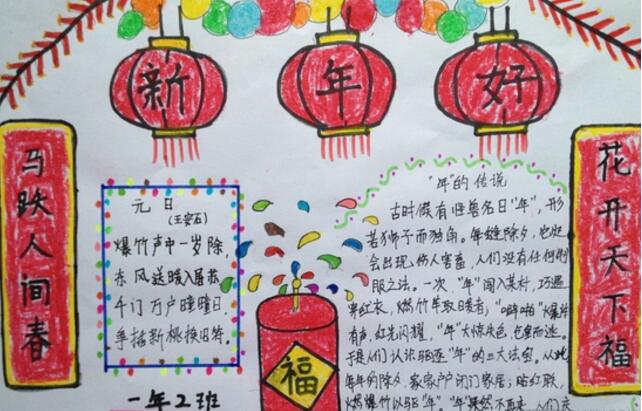 新 年 好
马跃人间春
花开天下福
元日
(王安石)
爆竹声中一岁除,
东风送暖入屠苏
千门万户曈曈日,
手插新桃换旧符.
福
一年2班
"年"的传说
古时候有怪兽名曰"年",形
若狮子而独角。每逢除夕,也定
会出现,伤人害畜,人们没有任何制
服之法。一次,"年"闯入某村,巧遇
穿红衣,燃竹竿取暖者;"噼啪"爆炸
有声,红光闪耀,"年"大惊失色,仓皇而逃。
于是人们认识驱逐"年"的三大法宝。从此
每年的除夕,家家户户闭门家居;贴红联,
燃爆竹以驱"年"。"年"果然不再来,人们